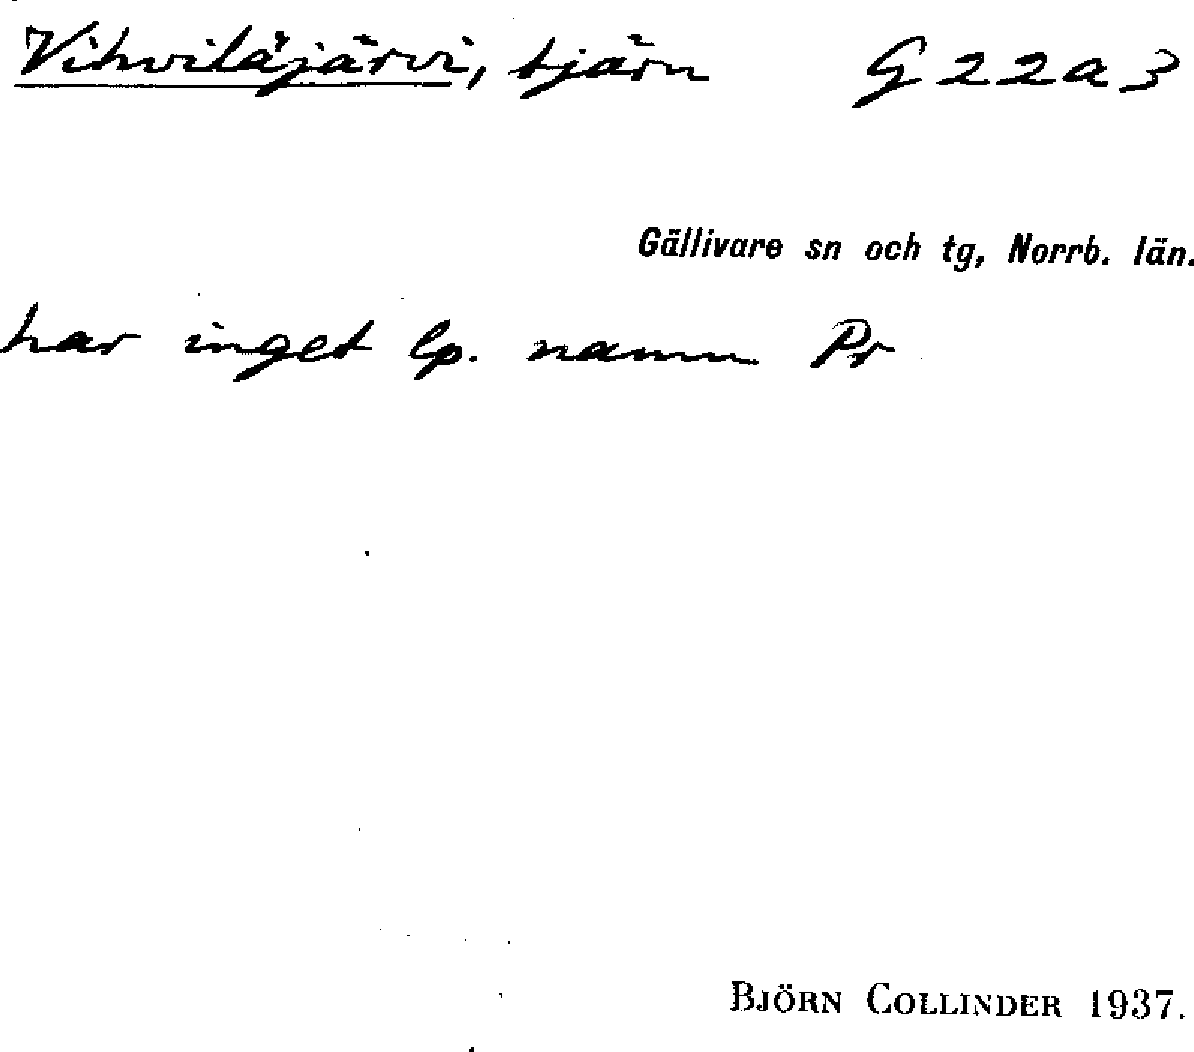 Vihviläjärvi, tjärn G22a3
Gällivare sn och tg, Norrb. län.
har inget lp. namn Pr
BJÖRN COLLINDER 1937.